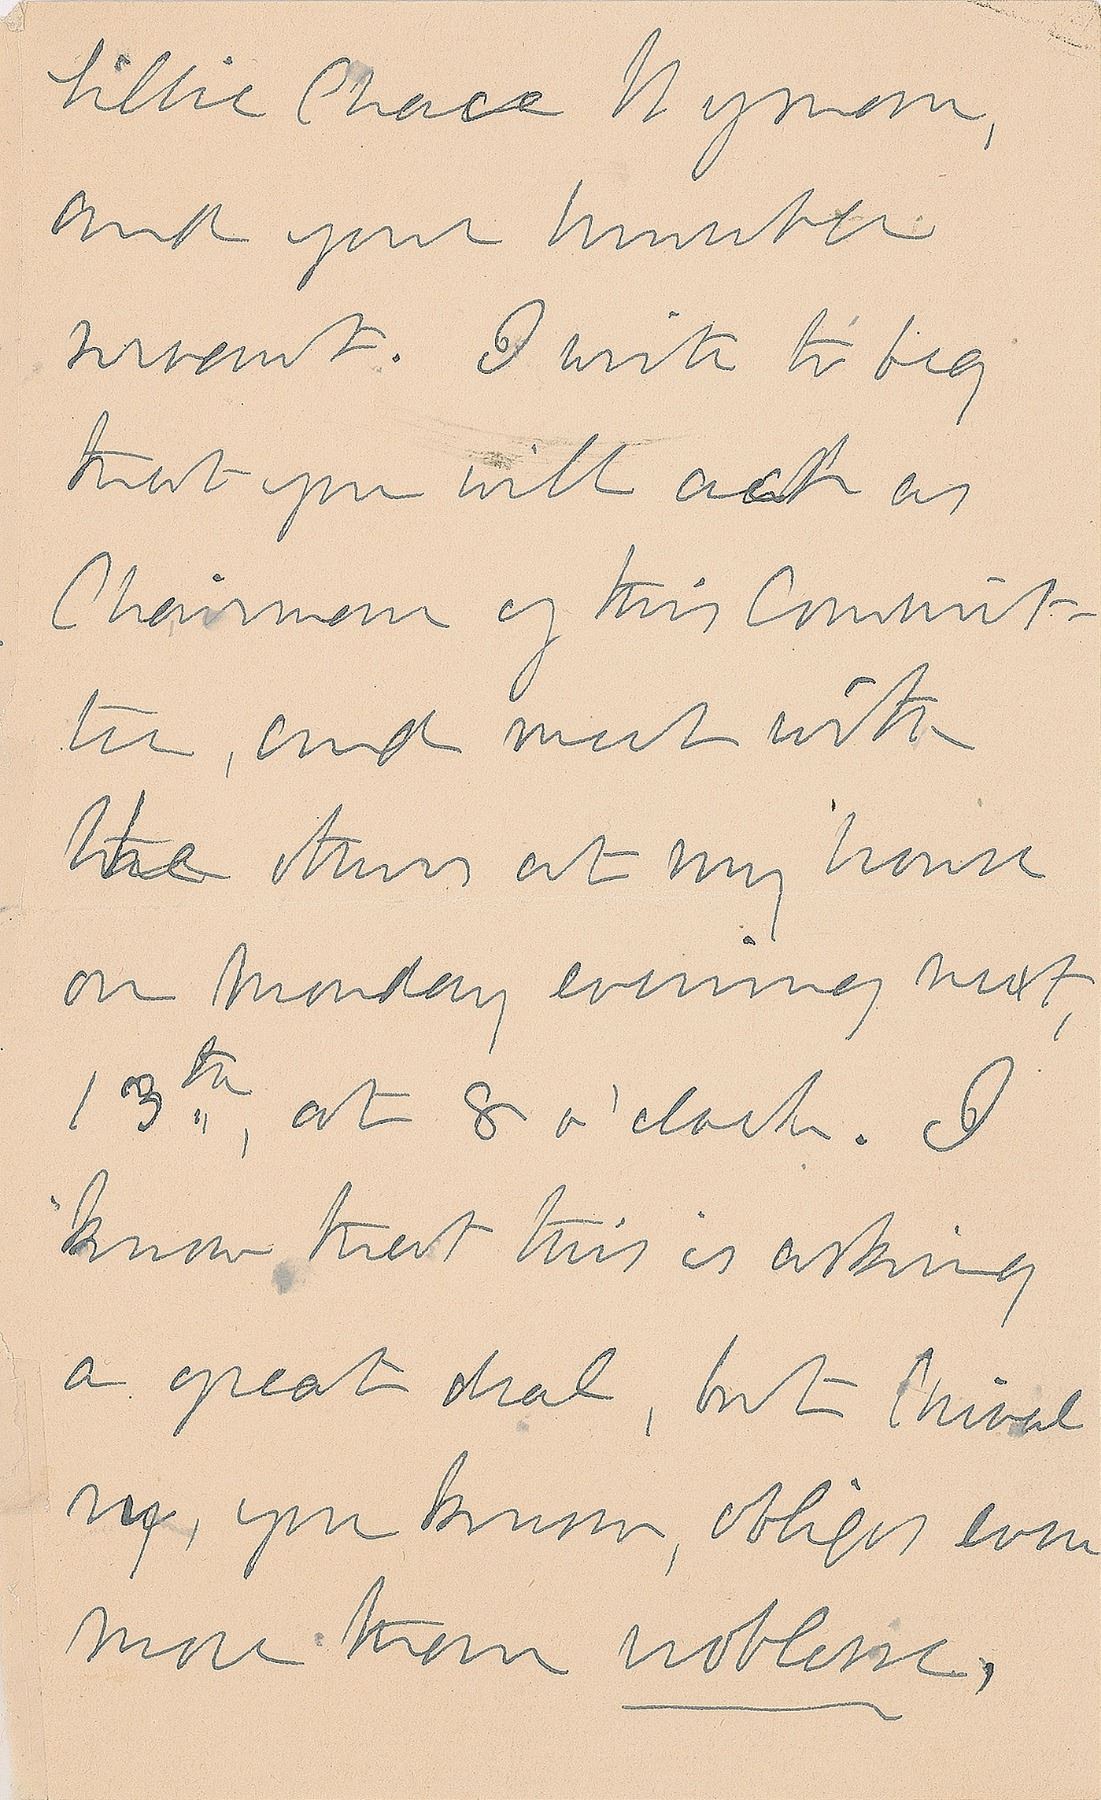 Lillie Chace Wyman,
and your humble
servant. I write to beg
that you will act as
Chairman of this Commit-
tee, and meet with
the others at my house
on Monday evening next,
13th, at 8 o'clock. I
know that this is asking
a great deal, but Chival
ry, you know, obliges even
more than noblesse,